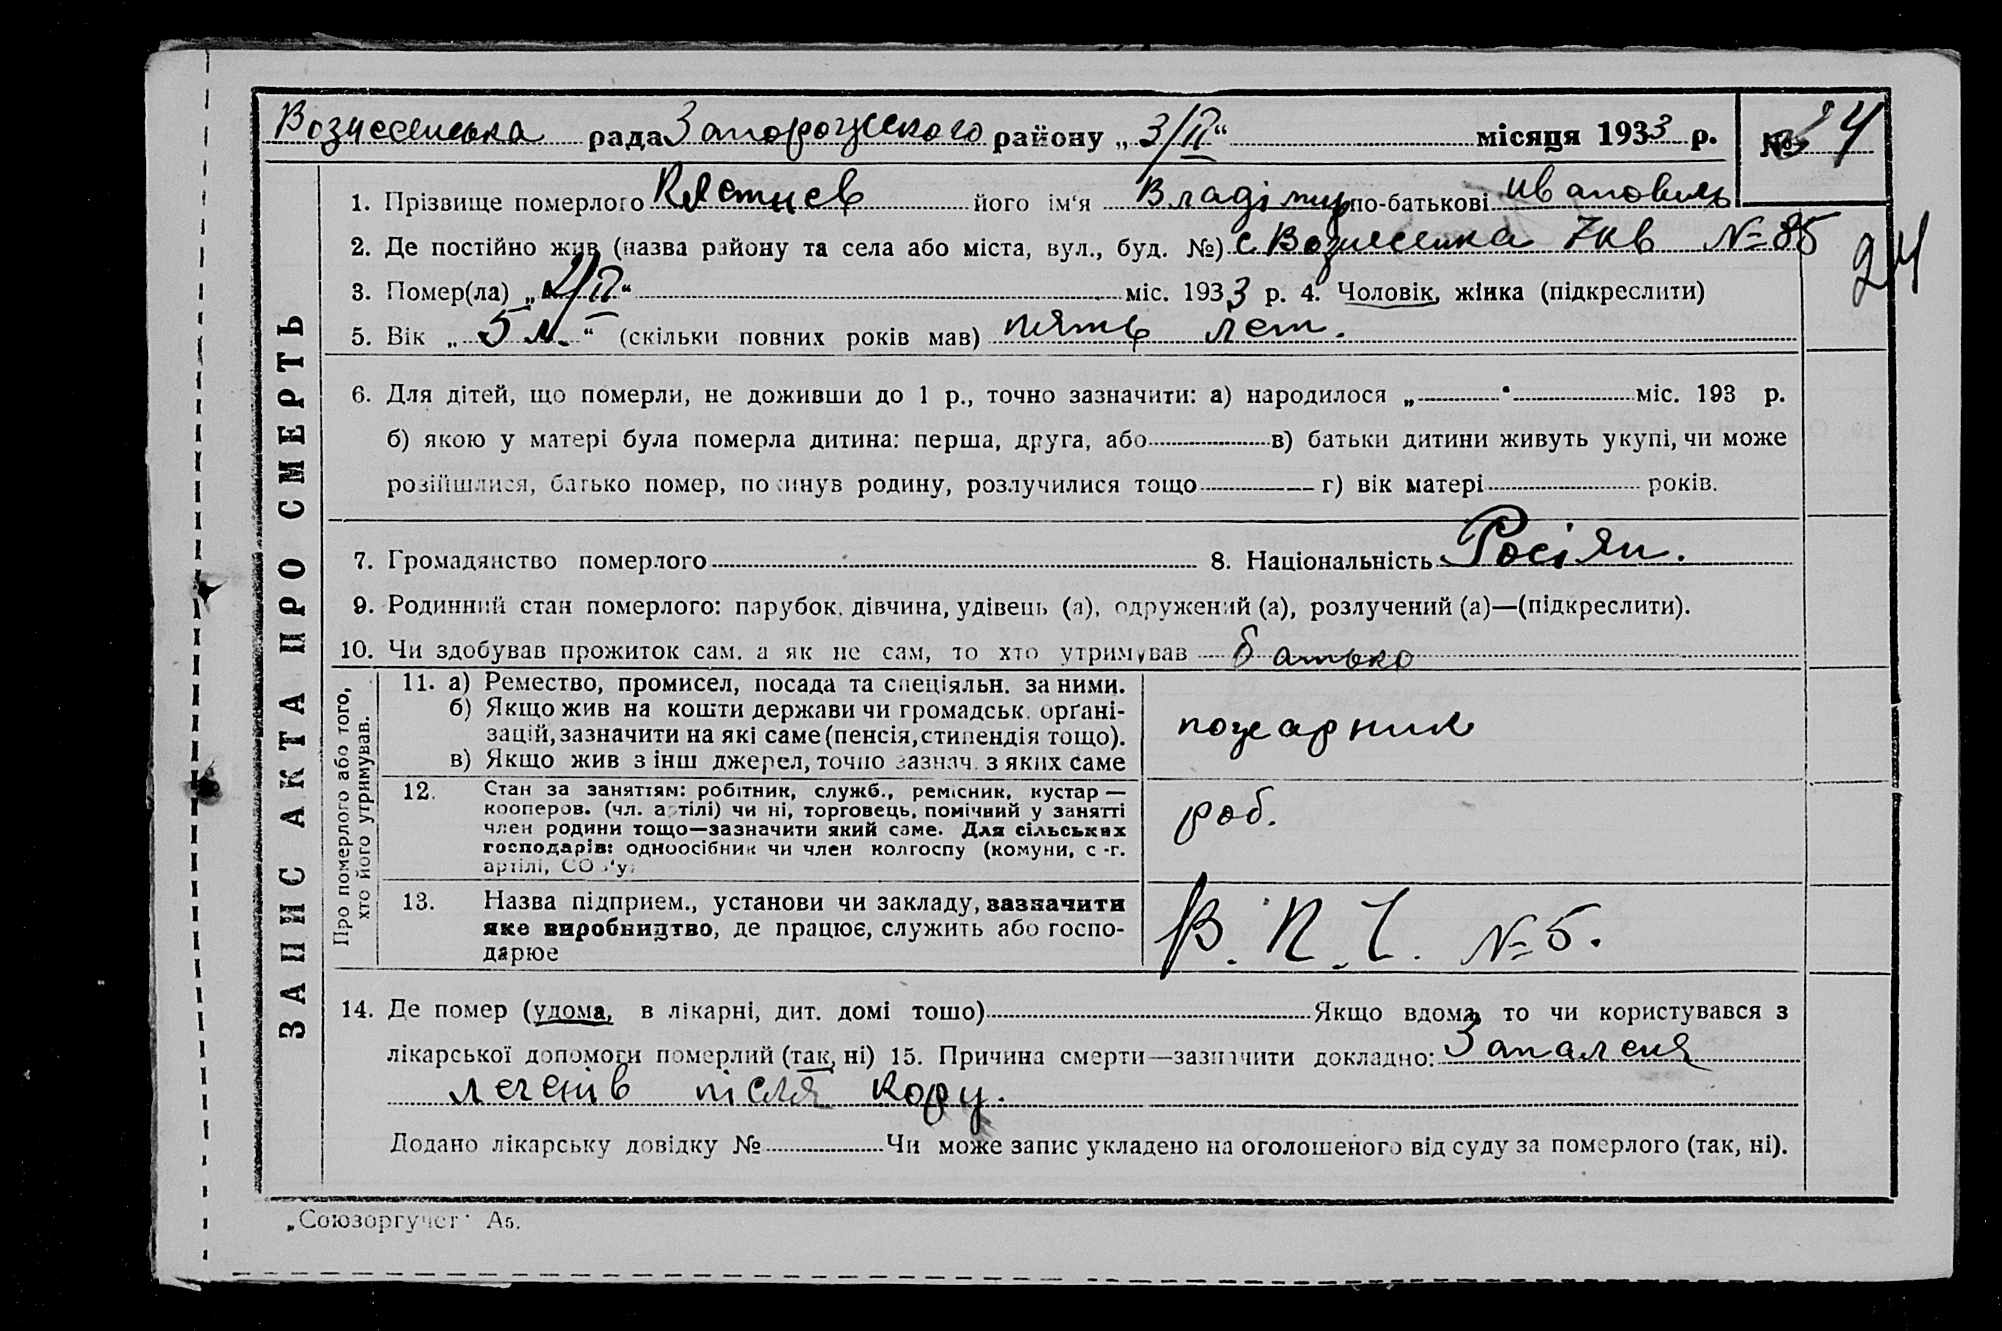 Вознесенська рада Запорожского району „3/II“ місяця 1933 р. № 24
1. Прізвище померлого його ім'я Владімир по-батькові Ивановичь
2. Де постійно жив (назва району та села або міста, вул., буд. №) с. Вознесенка 7 кв № 85
24
3. Помер(ла) „2/II“ міс. 1933 р. 4. Чоловік, жінка (підкреслити)
5. Вік „5 л.“ (скільки повних років мав) пять лет.
6. Для дітей, що померли, не доживши до 1 р., точно зазначити: а) народилося „ “ міс. 193 р.
б) якою у матері була померла дитина: перша, друга, або в) батьки дитини живуть укупі, чи може
розійшлися, батько помер, покинув родину, розлучилися тощо г) вік матері років.
7. Громадянство померлого 8. Національність Росіян.
9. Родинний стан померлого: парубок, дівчина, удівець (а), одружений (а), розлучений (а)—(підкреслити).
10. Чи здобував прожиток сам, а як не сам, то хто утримував батько
ЗАПИС АКТА ПРО СМЕРТЬ
Про померлого або того,
хто його утримував.
11. а) Ремество, промисел, посада та спеціяльн. за ними.
б) Якщо жив на кошти держави чи громадськ. органі-
зацій, зазначити на які саме (пенсія, стипендія тощо).
в) Якщо жив з інш джерел, точно зазнач. з яких саме
пожарник
12. Стан за заняттям: робітник, служб., ремісник, кустар —
кооперов. (чл. артілі) чи ні, торговець, помічний у занятті
член родини тощо—зазначити який саме. Для сільських
господарів: одноосібник чи член колгоспу (комуни, с-г.
артілі, СОЗ'у)
роб.
13. Назва підприєм., установи чи закладу, зазначити
яке виробництво, де працює, служить або госпо-
дарює
В. П. Ч. № 5.
14. Де помер (удома, в лікарні, дит. домі тощо) Якщо вдома, то чи користувався з
лікарської допомоги померлий (так, ні) 15. Причина смерти—зазначити докладно: Запаленя
легенів після кору.
Додано лікарську довідку № Чи може запис укладено на оголошеного від суду за померлого (так, ні).
„Союзоргучет“ А5.